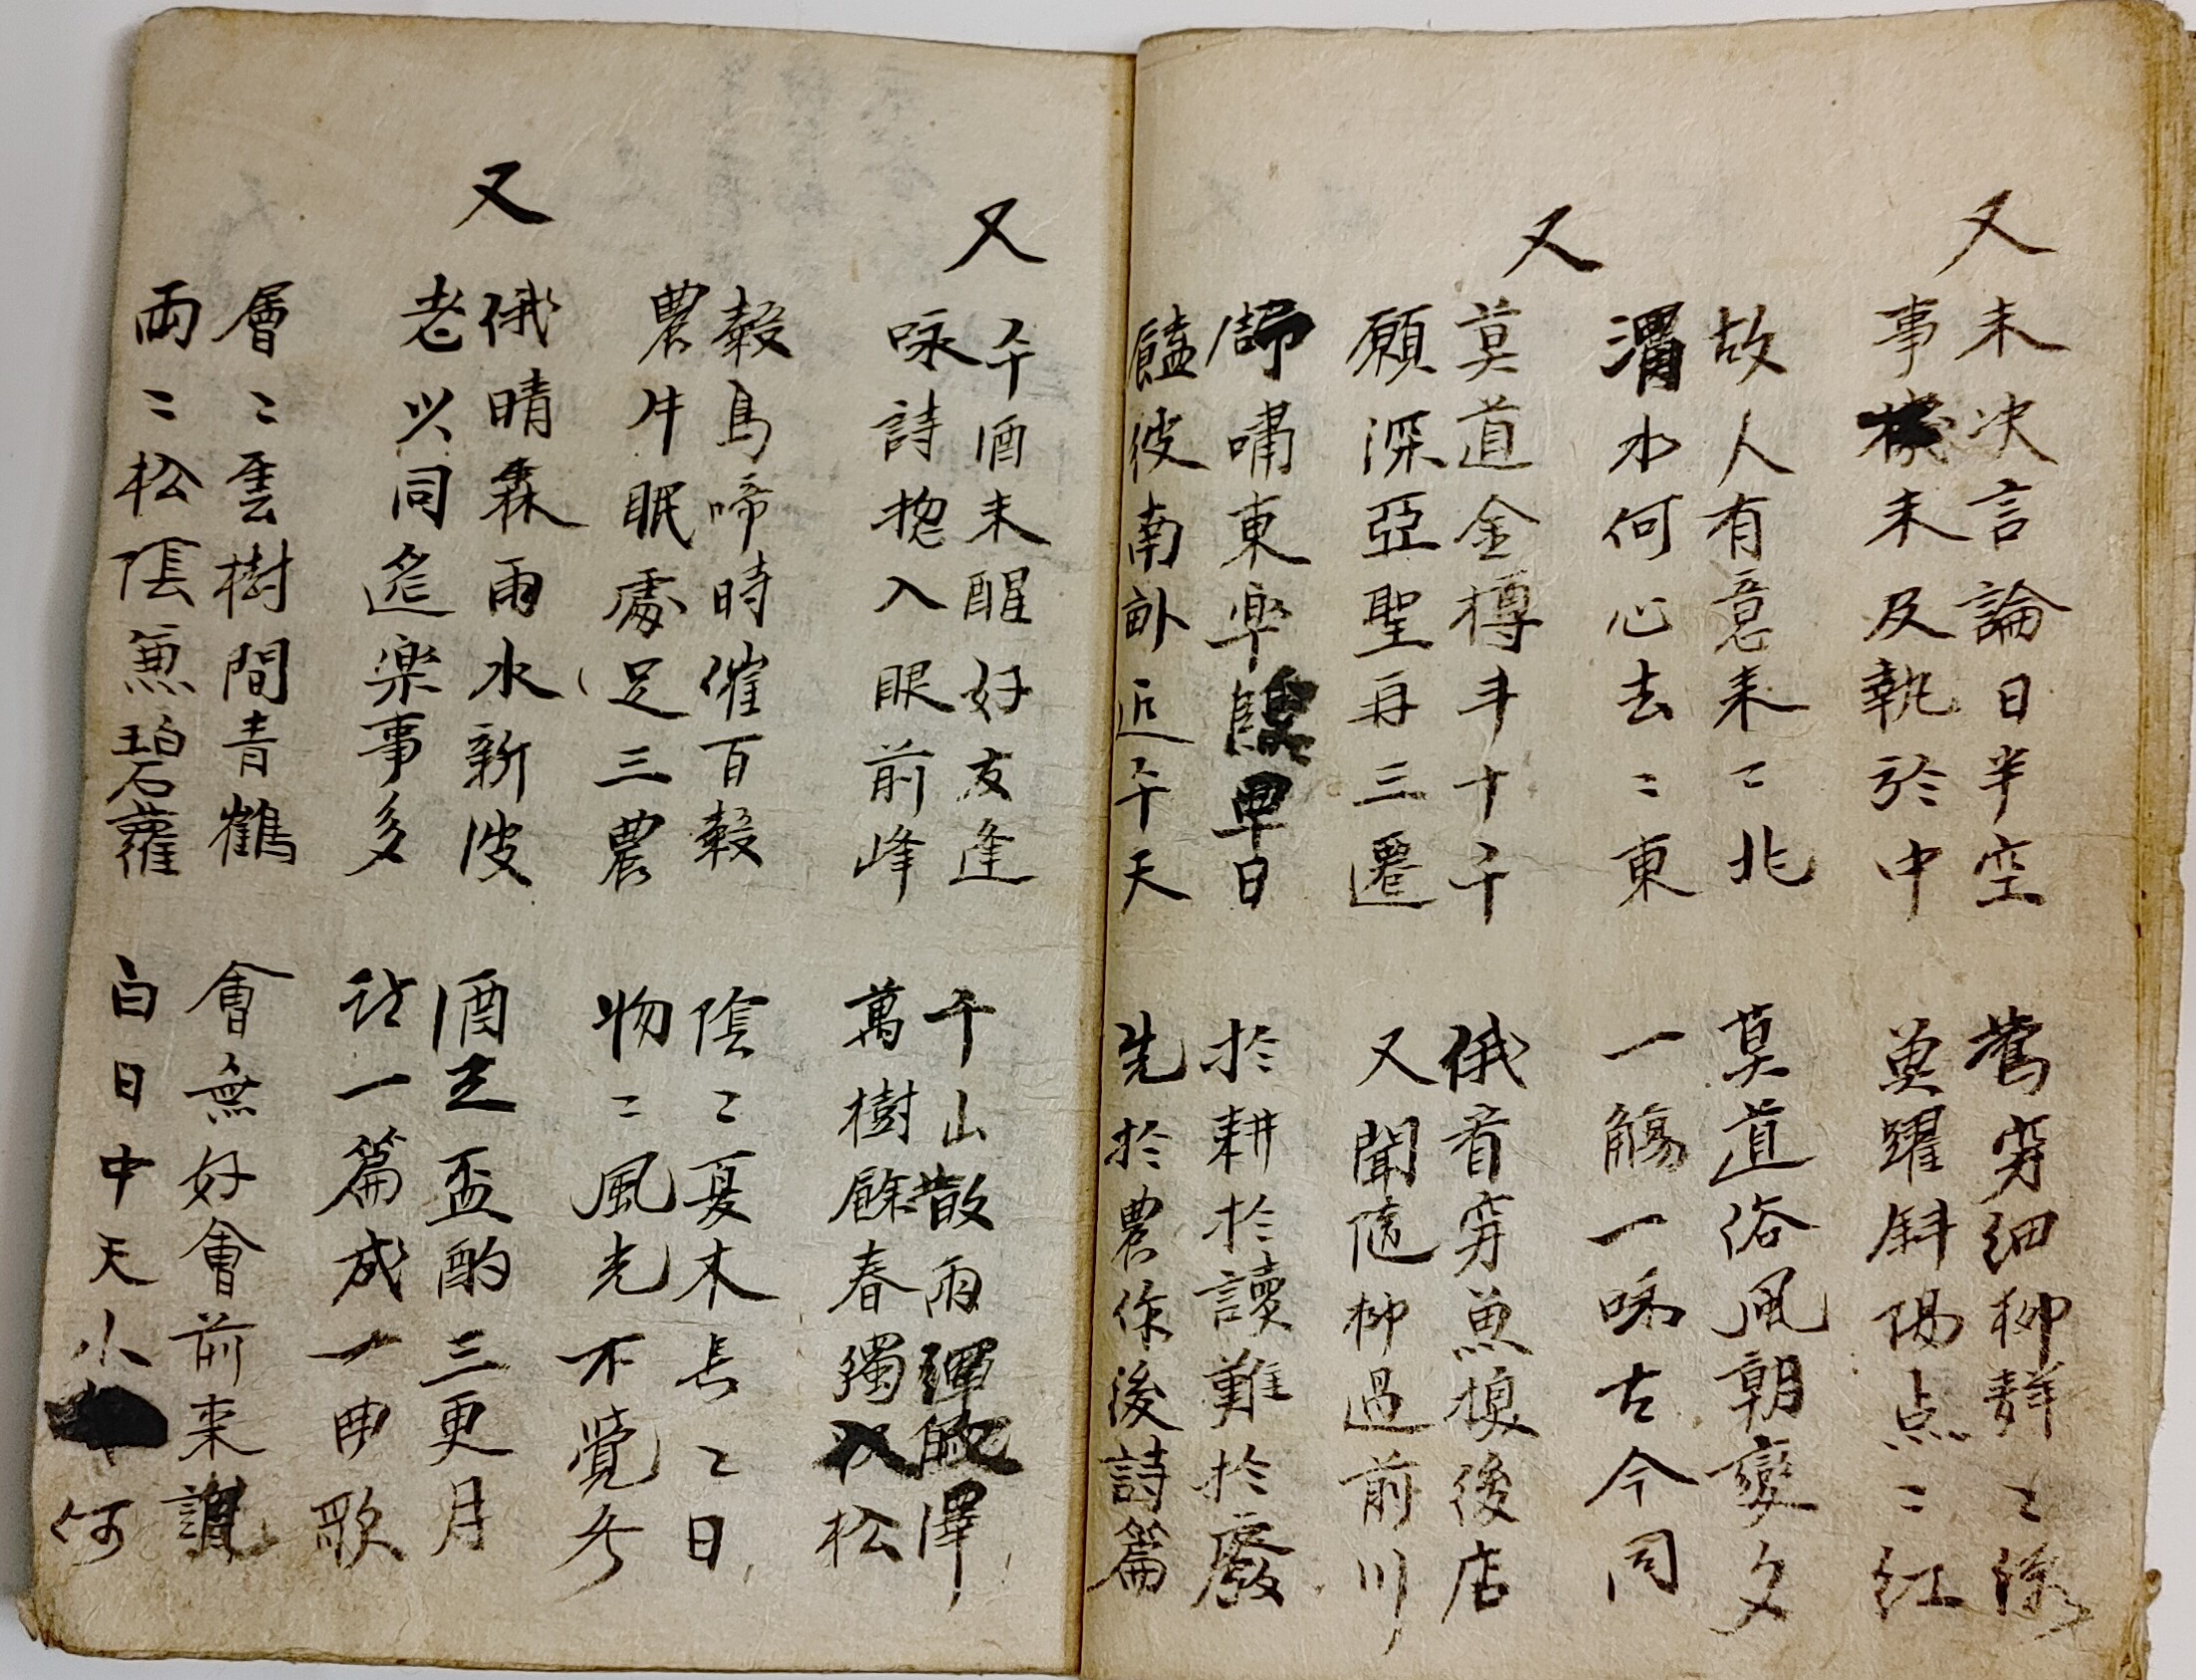 又
未决言論日半空 鶯穿細柳群〻綠
事機未及執於中 魚躍斜陽点〻紅
故人有意来〻北 莫道俗風朝變夕
渭水何心去〻東 一觴一咏古今同
又
莫道金樽斗十千 俄看穿魚横後店
願深亞聖再三遷 又聞随柳過前川
師嘯東皐早日 於耕於讀難於廢
饁彼南畝近午天 先於農作後詩篇
又
午酒未醒好友逢 千山散雨澤
咏詩揔入眼前峰 萬樹餘春獨松
穀鳥啼時催百穀 陰〻夏木長〻日
農牛眠處足三農 物〻風光不覺冬
又
俄晴霖雨水新波 酒足盃酌三更月
老少同筵楽事多 詩一篇成一曲歌
層〻雲樹間青鶴 會無好會前来謂
兩〻松陰兼碧蘿 白日中天小何